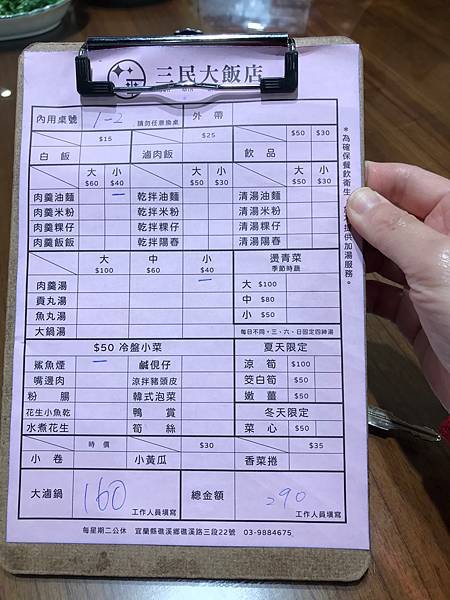 三民大飯店
內用桌號 1-2 請勿任意換桌 外帶
$15 $25 $50 $30
白飯 滷肉飯 飲品
大 $60 小 $40 大 $50 小 $30 大 $50 小 $30
肉羹油麵 一 乾拌油麵 清湯油麵
肉羹米粉 乾拌米粉 清湯米粉
肉羹粿仔 乾拌粿仔 清湯粿仔
肉羹飯飯 乾拌陽春 清湯陽春
大 $100 中 $60 小 $40 燙青菜 季節時蔬
肉羹湯 一 大 $100
貢丸湯 中 $80
魚丸湯 小 $50
大鍋湯 每日不同，三、六、日固定四神湯
$50 冷盤小菜 夏天限定
鯊魚煙 一 鹹俔仔 涼筍 $100
嘴邊肉 涼拌豬頭皮 筊白筍 $50
粉腸 韓式泡菜 嫩薑 $50
花生小魚乾 鴨賞 冬天限定
水煮花生 筍絲 菜心 $50
時價 $30 $35
小卷 小黃瓜 香菜捲
大滷鍋 160 工作人員填寫 總金額 290 工作人員填寫
每星期二公休 宜蘭縣礁溪鄉礁溪路三段22號 03-9884675
*為確保餐飲衛生 提供加湯服務。